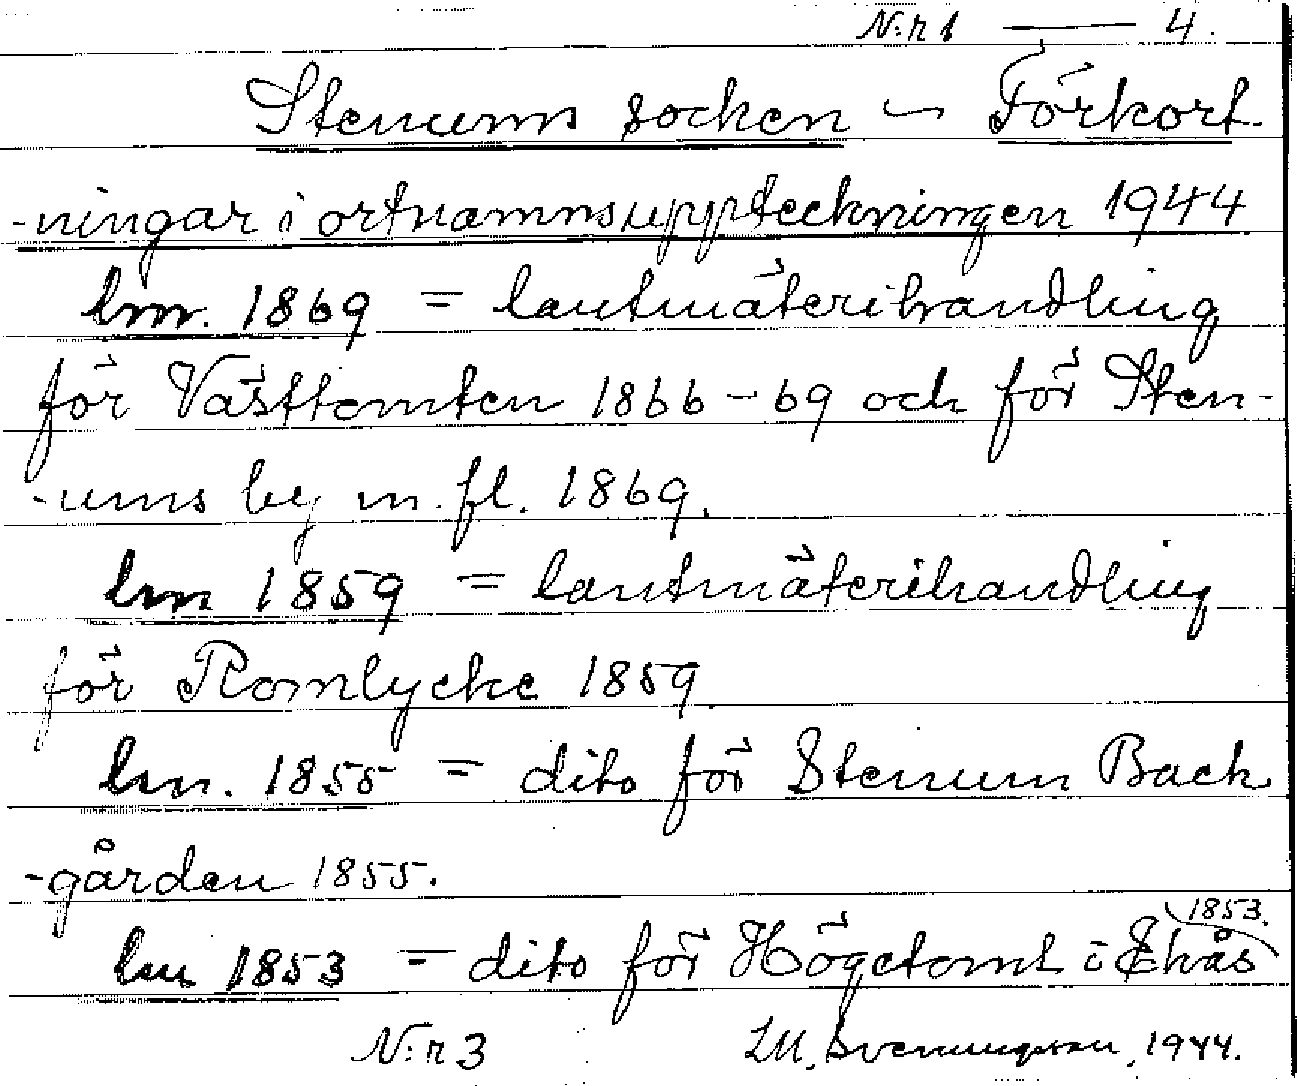 N:r 1 — 4.
Stenums socken – Förkort-
-ningar i ortnamnsuppteckningen 1944
lm. 1869 = lantmäterihandling
för Västtomten 1866-69 och för Sten-
-ums by m. fl. 1869.
lm 1859 = lantmäterihandling
för Romlycke 1859.
lm. 1855 = dito för Stenum Back
-gården 1855.
1853.
lm 1853 = dito för Högetomt i Ekås
N:r 3 LM. Svenungsson, 1944.